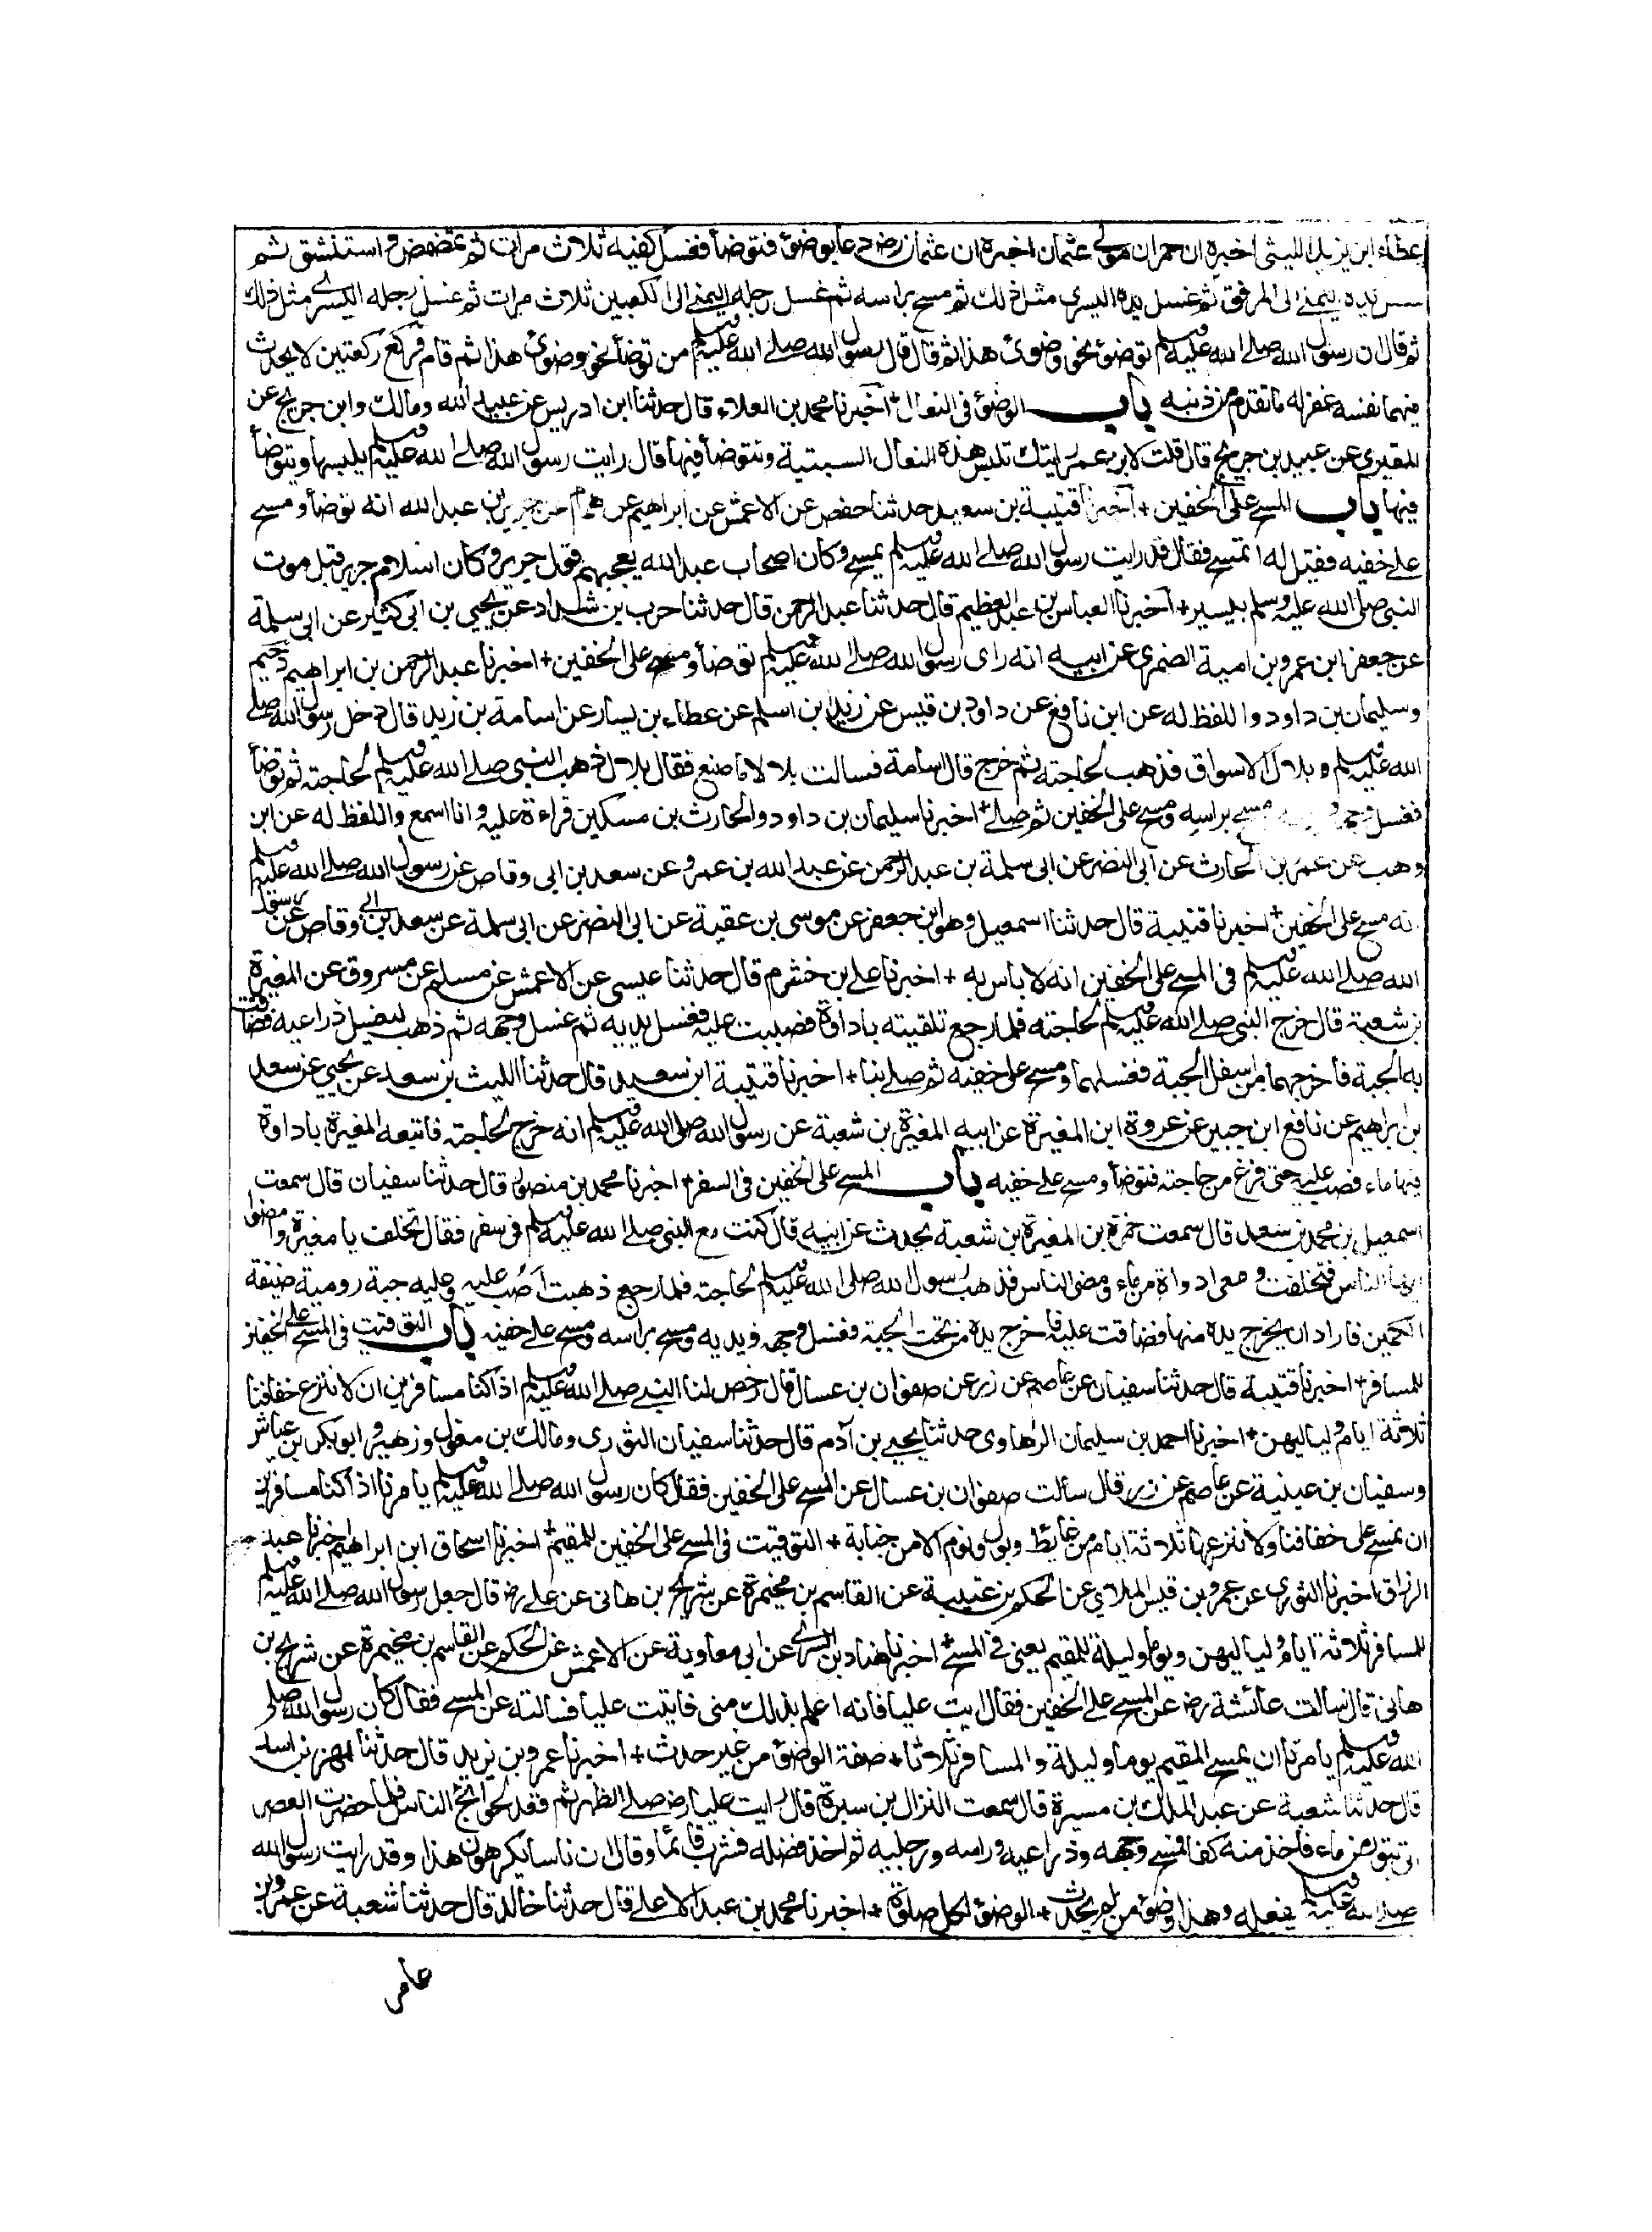 عطاء ابن يزيد الليثى اخبره ان حمران مولى عثمان اخبره ان عثمان رض دعا بوضوء فتوضأ فغسل كفيه ثلاث مرات ثم تمضمض واستنشق ثم
يده اليمنے الى المرفق ثم غسل يده اليسرى مثل ذلك ثم مسح براسه ثم غسل رجله اليمنے الى الكعبين ثلاث مرات ثم غسل رجله اليسرے مثل ذلك
ثم قال ان رسول الله صلے الله عليه وسلم توضئ نحو وضوئ هذا ثم قال قال رسول الله صلے الله عليه وسلم من توضأ نحو وضوئ هذا ثم قام فركع ركعتين لا يحدث
فيهما نفسه غفر له ما تقدم من ذنبه باب الوضوء فى النعال + اخبرنا محمد بن العلاء قال حدثنا ابن ادريس عن عبيد الله ومالك وابن جريج عن
المقبرى عن عبيد بن جريج قال قلت لابن عمر رايتك تلبس هذه النعال السبتية وتتوضأ فيها قال رايت رسول الله صلے الله عليه وسلم يلبسها ويتوضأ
فيها باب المسح على الخفين + اخبرنا قتيبة بن سعيد حدثنا حفص عن الاعمش عن ابراهيم عن همام عن جرير بن عبد الله انه توضأ ومسح
علے خفيه فقيل له اتمسح فقال قد رايت رسول الله صلے الله عليه وسلم يمسح وكان اصحاب عبد الله يعجبهم قول جرير وكان اسلام جرير قبل موت
النبى صلى الله عليه وسلم بيسير + اخبرنا العباس بن عبد العظيم قال حدثنا عبد الرحمن قال حدثنا حرب بن شداد عن يحيي بن ابى كثير عن ابى سلمة
عن جعفر ابن عمرو بن امية الضمرى عن ابيه انه راى رسول الله صلے الله عليه وسلم توضأ ومسح على الخفين + اخبرنا عبد الرحمن بن ابراهيم دحيم
وسليمان بن داود واللفظ له عن ابن نافع عن داود بن قيس عن زيد ابن اسلم عن عطاء بن يسار عن اسامة بن زيد قال دخل رسول الله صلے
الله عليه وسلم وبلال الاسواق فذهب لحاجته ثم خرج قال اسامة فسالت بلالا ما صنع فقال بلال ذهب النبى صلے الله عليه وسلم لحاجته ثم توضأ
فغسل وجهه مسح براسه ومسح على الخفين ثم صلے + اخبرنا سليمان بن داود والحارث بن مسكين قراءة عليه وانا اسمع واللفظ له عن ابن
وهب عن عمرو بن الحارث عن ابى النضر عن ابى سلمة بن عبد الرحمن عن عبد الله بن عمرو عن سعد بن ابى وقاص عن رسول الله صلے الله عليه وسلم
انه مسح على الخفين + اخبرنا قتيبة قال حدثنا اسمعيل وهو ابن جعفر عن موسى بن عقبة عن ابى النضر عن ابى سلمة عن سعد بن ابے وقاص عن رسول
الله صلے الله عليه وسلم فى المسح على الخفين انه لا باس به + اخبرنا على بن خشرم قال حدثنا عيسى عن الاعمش عن مسلم عن مسروق عن المغيرة
بن شعبة قال خرج النبى صلے الله عليه وسلم لحاجته فلما رجع تلقيته باداوة فصببت عليه فغسل يديه ثم غسل وجهه ثم ذهب ليغسل ذراعيه فضاقت
به الجبة فاخرجهما من اسفل الجبة فغسلهما ومسح على خفيه ثم صلے بنا + اخبرنا قتيبة ابن سعيد قال حدثنا الليث بن سعد عن يحيي عن سعد
بن ابراهيم عن نافع ابن جبير عن عروة ابن المغيرة عن ابيه المغيرة بن شعبة عن رسول الله صلى الله عليه وسلم انه خرج لحاجته فاتبعه المغيرة باداوة
فيها ماء فصب عليه حتى فرغ من حاجته فتوضأ ومسح علے خفيه باب المسح على الخفين فى السفر + اخبرنا محمد بن منصور قال حدثنا سفيان قال سمعت
اسمعيل بن محمد بن سعد قال سمعت حمزة بن المغيرة بن شعبة يحدث عن ابيه قال كنت مع النبى صلے الله عليه وسلم فى سفر فقال تخلف يا مغيرة وامضوا
ايها الناس فتخلفت ومعى اداوة من ماء ومضى الناس فذهب رسول الله صلى الله عليه وسلم لحاجته فلما رجع ذهبت اصب عليه وعليه جبة رومية ضيقة
الكمين فاراد ان يخرج يده منها فضاقت عليه فاخرج يده من تحت الجبة فغسل وجهه ويديه ومسح براسه ومسح علے خفيه باب التوقيت فى المسح علے الخفين
للمسافر + اخبرنا قتيبة قال حدثنا سفيان عن عاصم عن زر عن صفوان بن عسال قال رخص لنا النبے صلے الله عليه وسلم اذا كنا مسافرين ان لا ننزع خفافنا
ثلاثة ايام ولياليهن + اخبرنا احمد بن سليمان الرهاوى حدثنا يحيے بن آدم قال حدثنا سفيان الثورى ومالك بن مغول وزهير وابو بكر بن عياش
وسفيان بن عيينة عن عاصم عن زر قال سالت صفوان بن عسال عن المسح على الخفين فقال كان رسول الله صلے الله عليه وسلم يامرنا اذا كنا مسافرين
ان نمسح على خفافنا ولا ننزعها ثلاثة ايام من غائط وبول ونوم الا من جنابة + التوقيت فى المسح على الخفين للمقيم + اخبرنا اسحاق ابن ابراهيم اخبرنا عبد
الرزاق اخبرنا الثورى عن عمرو بن قيس الملائ عن الحكم بن عتيبة عن القاسم بن مخيمرة عن شريح بن هانى عن علے رض قال جعل رسول الله صلے الله عليه وسلم
للمسافر ثلاثة ايام ولياليهن ويوما وليلة للمقيم يعنى فى المسح + اخبرنا هناد بن السرے عن ابى معاوية عن الاعمش عن الحكم عن القاسم بن مخيمرة عن شريح بن
هانى قال سالت عائشة رض عن المسح علے الخفين فقالت ايت عليا فانه اعلم بذلك منى فاتيت عليا فسالته عن المسح فقال كان رسول الله صلے
الله عليه وسلم يامرنا ان يمسح المقيم يوما وليلة والمسافر ثلاثا + صفة الوضوء من غير حدث + اخبرنا عمرو بن يزيد قال حدثنا بهز بن اسد
قال حدثنا شعبة عن عبد الملك بن ميسرة قال سمعت النزال بن سبرة قال رايت عليا رض صلے الظهر ثم قعد لحوائج الناس فلما حضرت العصر
اتى بتور من ماء فاخذ منه كفا فمسح وجهه وذراعيه وراسه ورجليه ثم اخذ فضله فشرب قائما وقال ان ناسا يكرهون هذا وقد رايت رسول الله
صلے الله عليه وسلم يفعله وهذا وضوء من لم يحدث + الوضوء لكل صلوة + اخبرنا محمد بن عبد الاعلے قال حدثنا خالد قال حدثنا شعبة عن عمرو بن
عامر